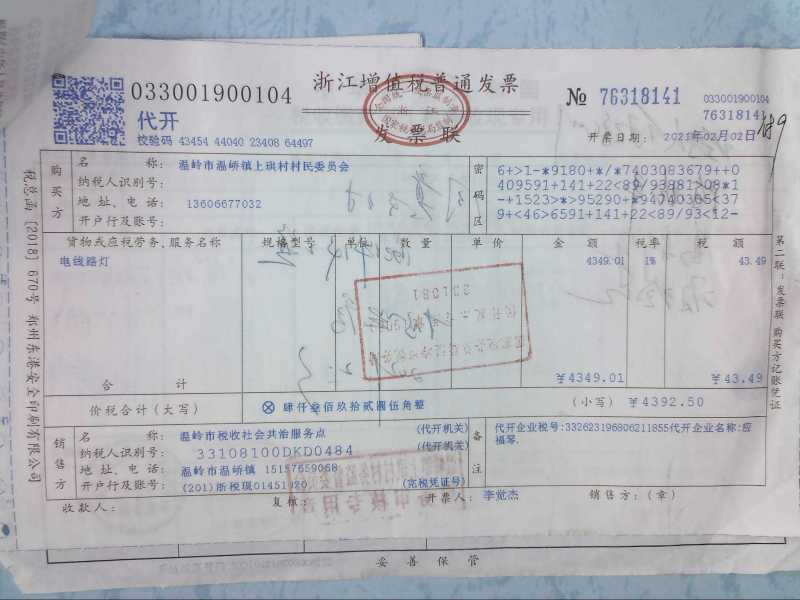 033001900104
浙江增值税普通发票
№ 76318141
033001900104
76318141
代开
发票联
校验码 43454 44040 23408 64497
开票日期: 2021年02月02日
购买方
名 称: 温岭市温峤镇上珙村村民委员会
纳税人识别号:
地 址、电 话: 13606677032
开户行及账号:
密码区
6+>1-*9180+*/*7403083679++0
409591+141+22<89/93881>08*1
-+1523>*>95290+*94740305<37
9+<46>6591+141+22<89/93<12-
货物或应税劳务、服务名称 规格型号 单位 数 量 单 价 金 额 税率 税 额
电线路灯 4349.01 1% 43.49
合 计 ¥4349.01 ¥43.49
价税合计(大写) ⊗ 肆仟叁佰玖拾贰圆伍角整 (小写) ¥4392.50
销售方
名 称: 温岭市税收社会共治服务点 (代开机关)
纳税人识别号: 33108100DKD0484 (代开机关)
地 址、电 话: 温岭市温峤镇 15157659068
开户行及账号: (完税凭证号)
备注
代开企业税号:332623196806211855代开企业名称:应
福琴.
收款人: 复核: 开票人: 李觉杰 销售方:(章)
税总函〔2018〕670号 郑州东港安全印刷有限公司
第二联:发票联 购买方记账凭证
妥善保管